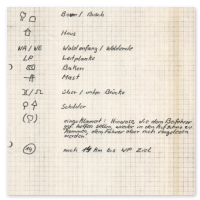 Baum / Busch
Haus
WA / WE Waldanfang / Waldende
LP Leitplanke
Baken
Mast
über / unter Brücke
Schilder
eingeklammert: Hinweise, die dem Beifahrer
helfen sollen, werden in den Aufschrieb zu
kommen, dem Fahrer aber nicht vorgelesen
werden.
noch km bis WP Ziel